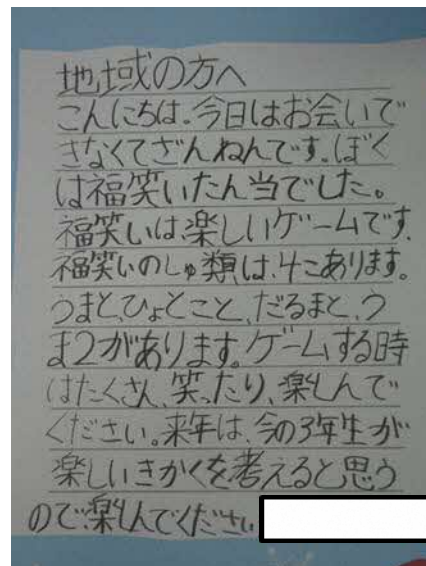 地域の方へ
こんにちは。今日はお会いで
きなくてざんねんです。ぼく
は福笑いたん当でした。
福笑いは、楽しいゲームです。
福笑いのしゅ類は、4こあります。
うまと、ひょとこと、だるまと、う
ま2があります。ゲームする時
はたくさん、笑ったり、楽しんで
ください。来年は、今の3年生が
楽しいきかくを考えると思う
ので、楽しんでください